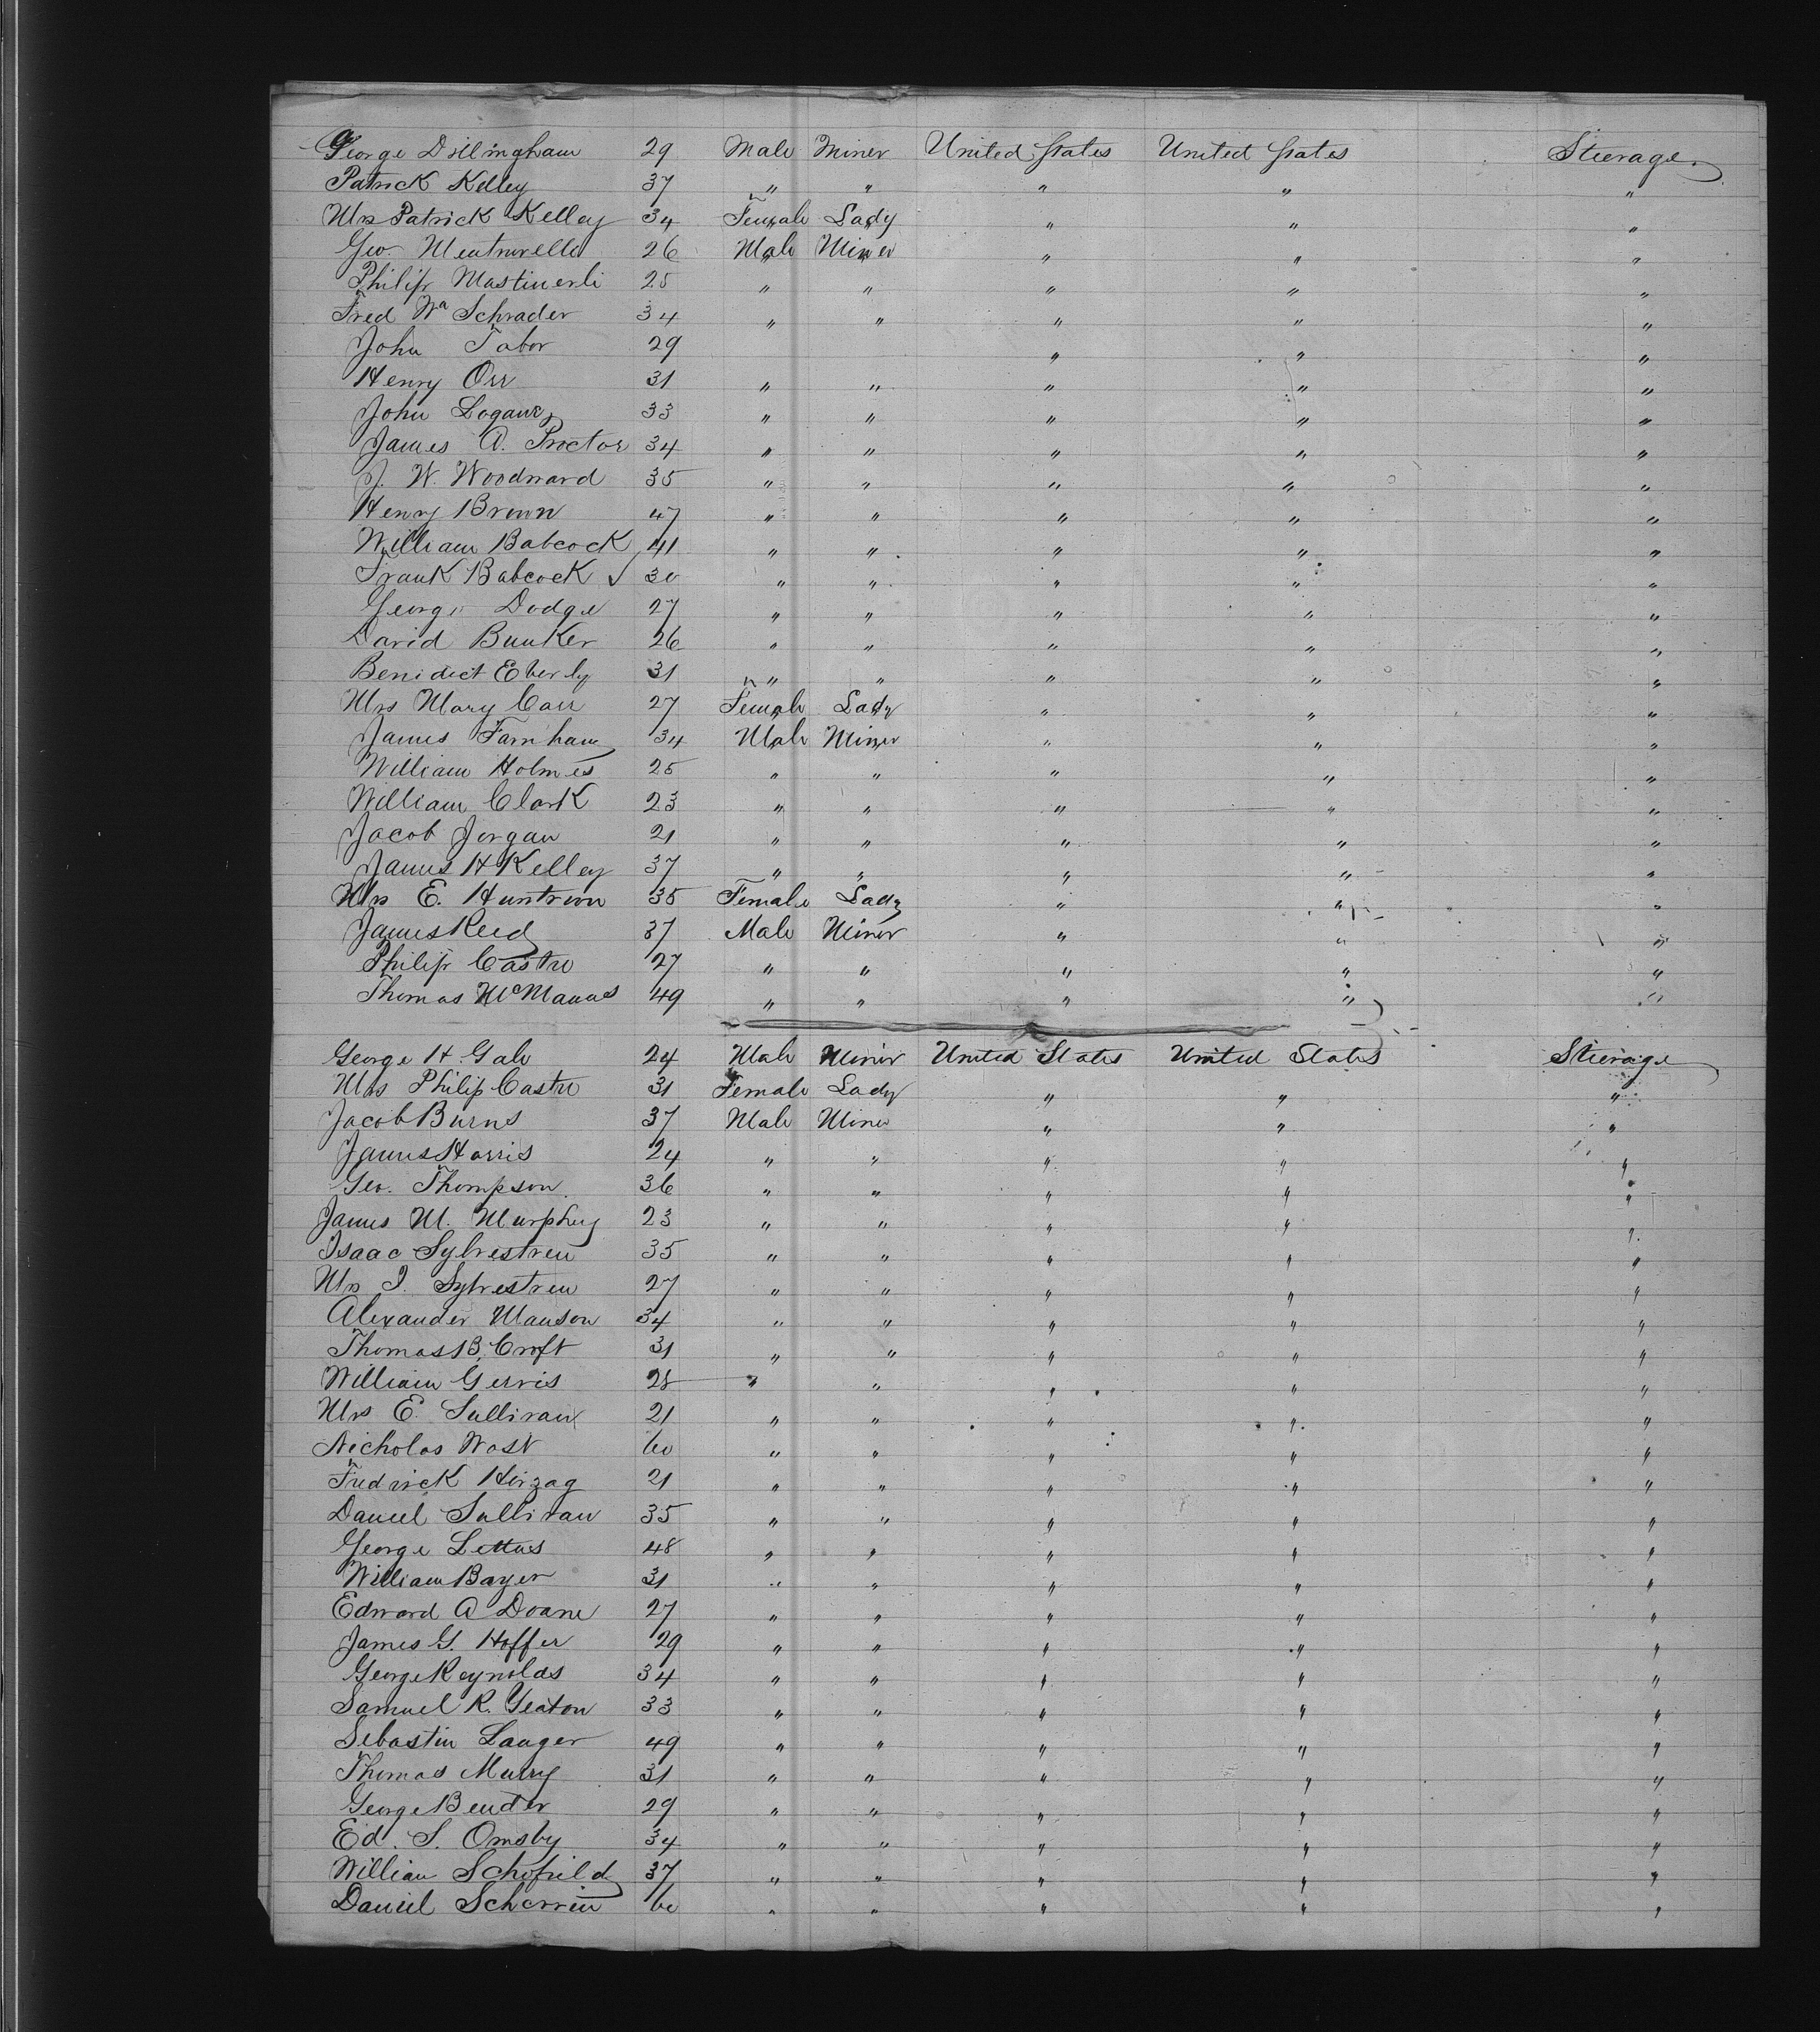 George Dillingham 29 Male Miner United States United States Steerage
Patrick Kelley 37 " " " " "
Mrs Patrick Kelley 34 Female Lady " " "
Geo. 26 Male Miner " " "
Philip 25 " " " " "
Fred Schrader 34 " " " " "
John Tabor 29 " " "
Henry Orr 31 " " " " "
John 33 " " " " "
James A. Proctor 34 " " " " "
J. W. Woodward 35 " " " " "
Henry Brown 47 " " " " "
William Babcock 41 " " " " "
Frank Babcock ✓ 30 " " " " "
George Dodge 27 " " " " "
David Bunker 26 " " " " "
Benidict Eberly 31 " " " " "
Mrs Mary Carr 27 Female Lady " " "
James Farnham 34 Male Miner " " "
William Holmes 25 " " " " "
William Clark 23 " " " " "
Jacob Jorgan 21 " " " " "
James H Kelley 37 " " " " "
Mrs E. 35 Female Lady " " "
James Reed 37 Male Miner " " "
Philip Castro 27 " " " " "
Thomas McManus 49 " " " "
George H. Gale 24 Male Miner United States United States Steerage
Mrs Philip Castro 31 Female Lady " " "
Jacob Burns 37 Male Miner " " "
James Harris 24 " " " " "
Geo. Thompson 36 " " " " "
James M. Murphy 23 " " " " "
Isaac Sylvestren 35 " " " " "
Mrs I. Sylvestren 27 " " " " "
Alexander Manson 34 " " " " "
Thomas B. Croft 31 " " " " "
William Gervis 28 " " " " "
Mrs E. Sullivan 21 " " " " "
Nicholas 60 " " " " "
Fredrick Herzog 21 " " " " "
Daniel Sullivan 35 " " " " "
George Lettus 48 " " " " "
William Bayer 31 " " " " "
Edward A Doane 27 " " " " "
James G. Hoffer 29 " " " " "
George Reynolds 34 " " " " "
Samuel R. Yeaton 33 " " " " "
Sebastin Langer 49 " " " " "
Thomas Murry 31 " " " " "
George Bender 29 " " " " "
Ed. S. Omsby 34 " " " " "
William Schofield 37 " " " " "
Daniel 60 " " " " "